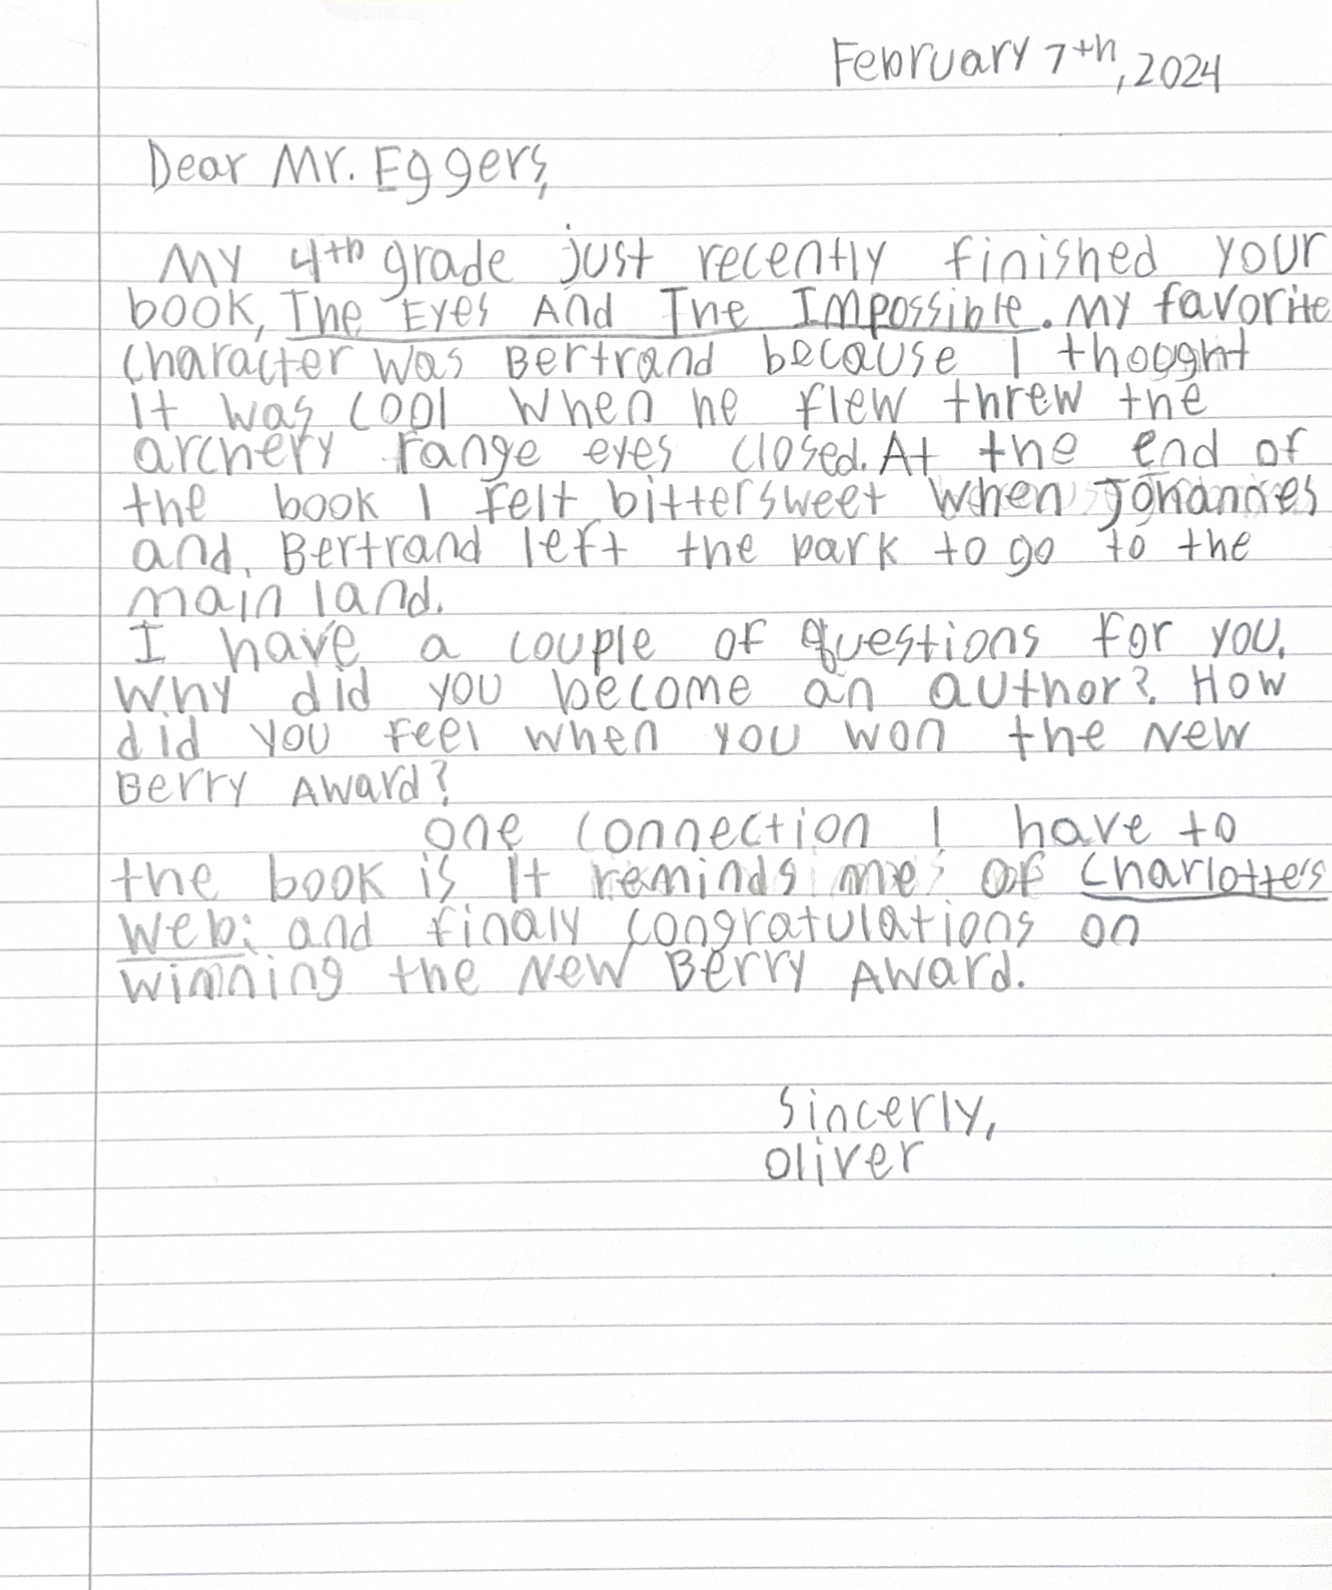 February 7th, 2024
Dear Mr. Eggers,
My 4th grade just recently finished your
book, The Eyes And The Impossible. My favorite
character was Bertrand because I thooght
it was cool when he flew threw the
archery range eyes closed. At the end of
the book I felt bittersweet when Johannes
and. Bertrand left the park to go to the
main land.
I have a couple of questions for you.
Why did you become an author? How
did you feel when you won the New
Berry Award?
one connection I have to
the book is It reminds me of Charlotte's
Web: and finaly congratulations on
winning the New Berry Award.
Sincerly,
Oliver